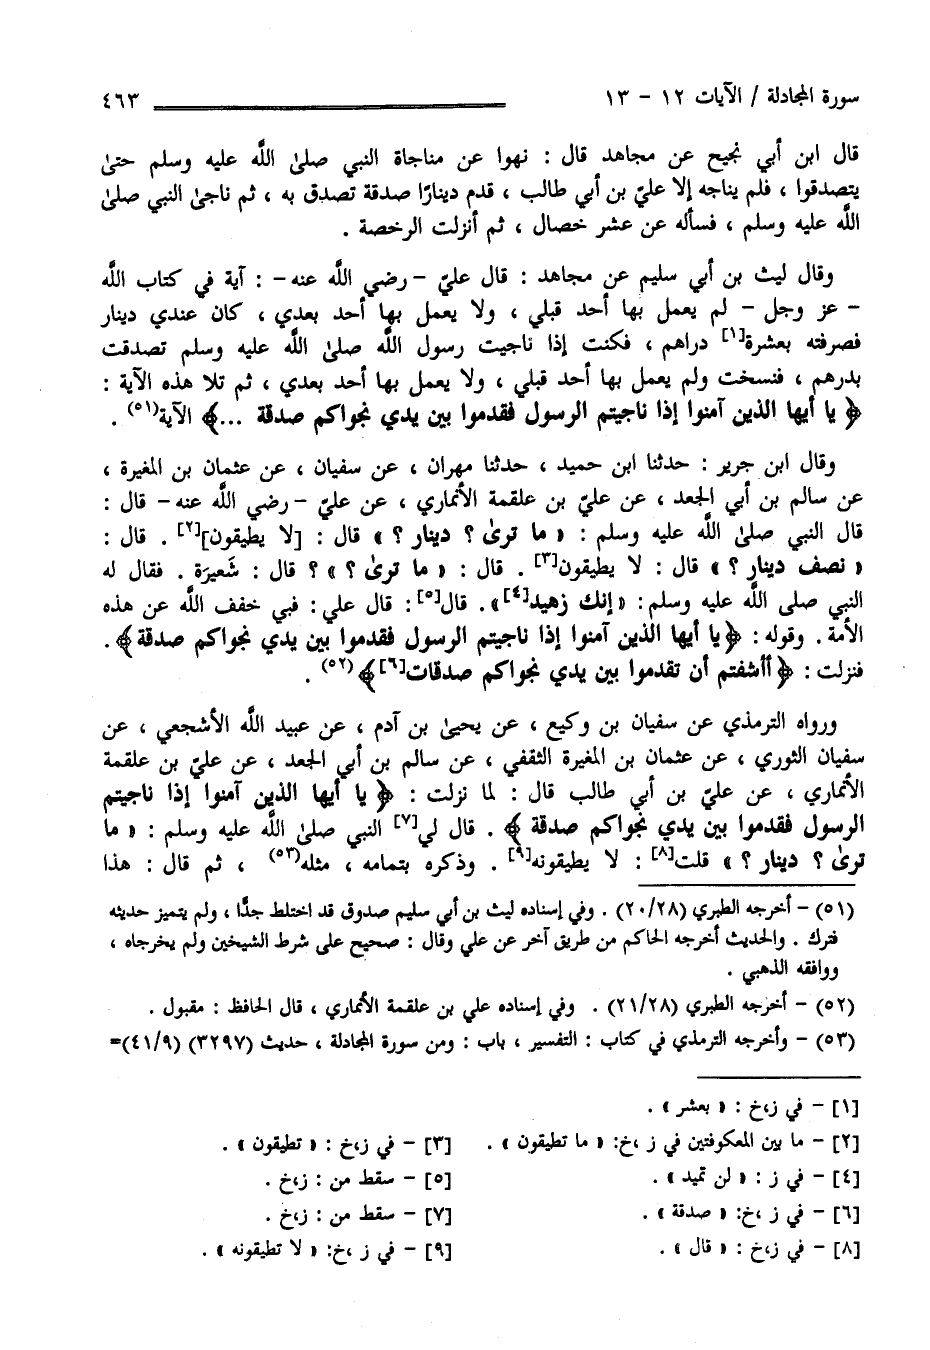 سورة المجادلة / الآيات ١٢ - ١٣ ٤٦٣
قال ابن أبي نجيح عن مجاهد قال : نهوا عن مناجاة النبي صلىٰ اللَّه عليه وسلم حتىٰ
يتصدقوا ، فلم يناجه إلا عليّ بن أبي طالب ، قدم دينارًا صدقة تصدق به ، ثم ناجىٰ النبي صلىٰ
اللَّه عليه وسلم ، فسأله عن عشر خصال ، ثم أنزلت الرخصة .
وقال ليث بن أبي سليم عن مجاهد : قال عليّ -رضي اللَّه عنه- : آية في كتاب اللَّه
- عز وجل - لم يعمل بها أحد قبلي ، ولا يعمل بها أحد بعدي ، كان عندي دينار
فصرفته بعشرة[١] دراهم ، فكنت إذا ناجيت رسول اللَّه صلىٰ اللَّه عليه وسلم تصدقت
بدرهم ، فنسخت ولم يعمل بها أحد قبلي ، ولا يعمل بها أحد بعدي ، ثم تلا هذه الآية :
﴿ يا أيها الذين آمنوا إذا ناجيتم الرسول فقدموا بين يدي نجواكم صدقة ...﴾ الآية(٥١) .
وقال ابن جرير : حدثنا ابن حميد ، حدثنا مهران ، عن سفيان ، عن عثمان بن المغيرة ،
عن سالم بن أبي الجعد ، عن عليّ بن علقمة الأنماري ، عن عليّ -رضي اللَّه عنه- قال :
قال النبي صلىٰ اللَّه عليه وسلم : « ما ترىٰ ؟ دينار ؟ » قال : [لا يطيقون][٢] . قال :
« نصف دينار ؟ » قال : لا يطيقون[٣] . قال : « ما ترىٰ ؟ » ؟ قال : شَعيرَة . فقال له
النبي صلى اللَّه عليه وسلم : «إنك زهيد[٤]». قال[٥]: قال علي: فبي خفف اللَّه عن هذه
الأمة. وقوله: ﴿يا أيها الذين آمنوا إذا ناجيتم الرسول فقدموا بين يدي نجواكم صدقة﴾.
فنزلت : ﴿أأشفتم أن تقدموا بين يدي نجواكم صدقات[٦]﴾(٥٢) .
ورواه الترمذي عن سفيان بن وكيع ، عن يحيىٰ بن آدم ، عن عبيد اللَّه الأشجعي ، عن
سفيان الثوري ، عن عثمان بن المغيرة الثقفي ، عن سالم بن أبي الجعد ، عن عليّ بن علقمة
الأنماري ، عن عليّ بن أبي طالب قال : لما نزلت : ﴿ يا أيها الذين آمنوا إذا ناجيتم
الرسول فقدموا بين يدي نجواكم صدقة ﴾ . قال لي[٧] النبي صلىٰ اللَّه عليه وسلم : « ما
ترىٰ ؟ دينار ؟ » قلت[٨] : لا يطيقونه[٩] . وذكره بتمامه ، مثله(٥٣) ، ثم قال : هذا
(٥١) - أخرجه الطبري (٢٠/٢٨) . وفي إسناده ليث بن أبي سليم صدوق قد اختلط جدًّا ، ولم يتميز حديثه
فترك . والحديث أخرجه الحاكم من طريق آخر عن علي وقال : صحيح على شرط الشيخين ولم يخرجاه ،
ووافقه الذهبي .
(٥٢) - أخرجه الطبري (٢١/٢٨) . وفي إسناده علي بن علقمة الأنماري ، قال الحافظ : مقبول .
(٥٣) - وأخرجه الترمذي في كتاب : التفسير ، باب : ومن سورة المجادلة ، حديث (٣٢٩٧) (٤١/٩)=
[١] - في ز،خ : « بعشر » .
[٢] - ما بين المعكوفتين في ز ،خ: « ما تطيقون » . [٣] - في ز،خ : « تطيقون » .
[٤] - في ز : « لن تميد » . [٥] - سقط من : ز،خ .
[٦] - في ز ،خ: « صدقة » . [٧] - سقط من : ز،خ .
[٨] - في ز،خ : « قال » . [٩] - في ز ،خ: « لا تطيقونه » .